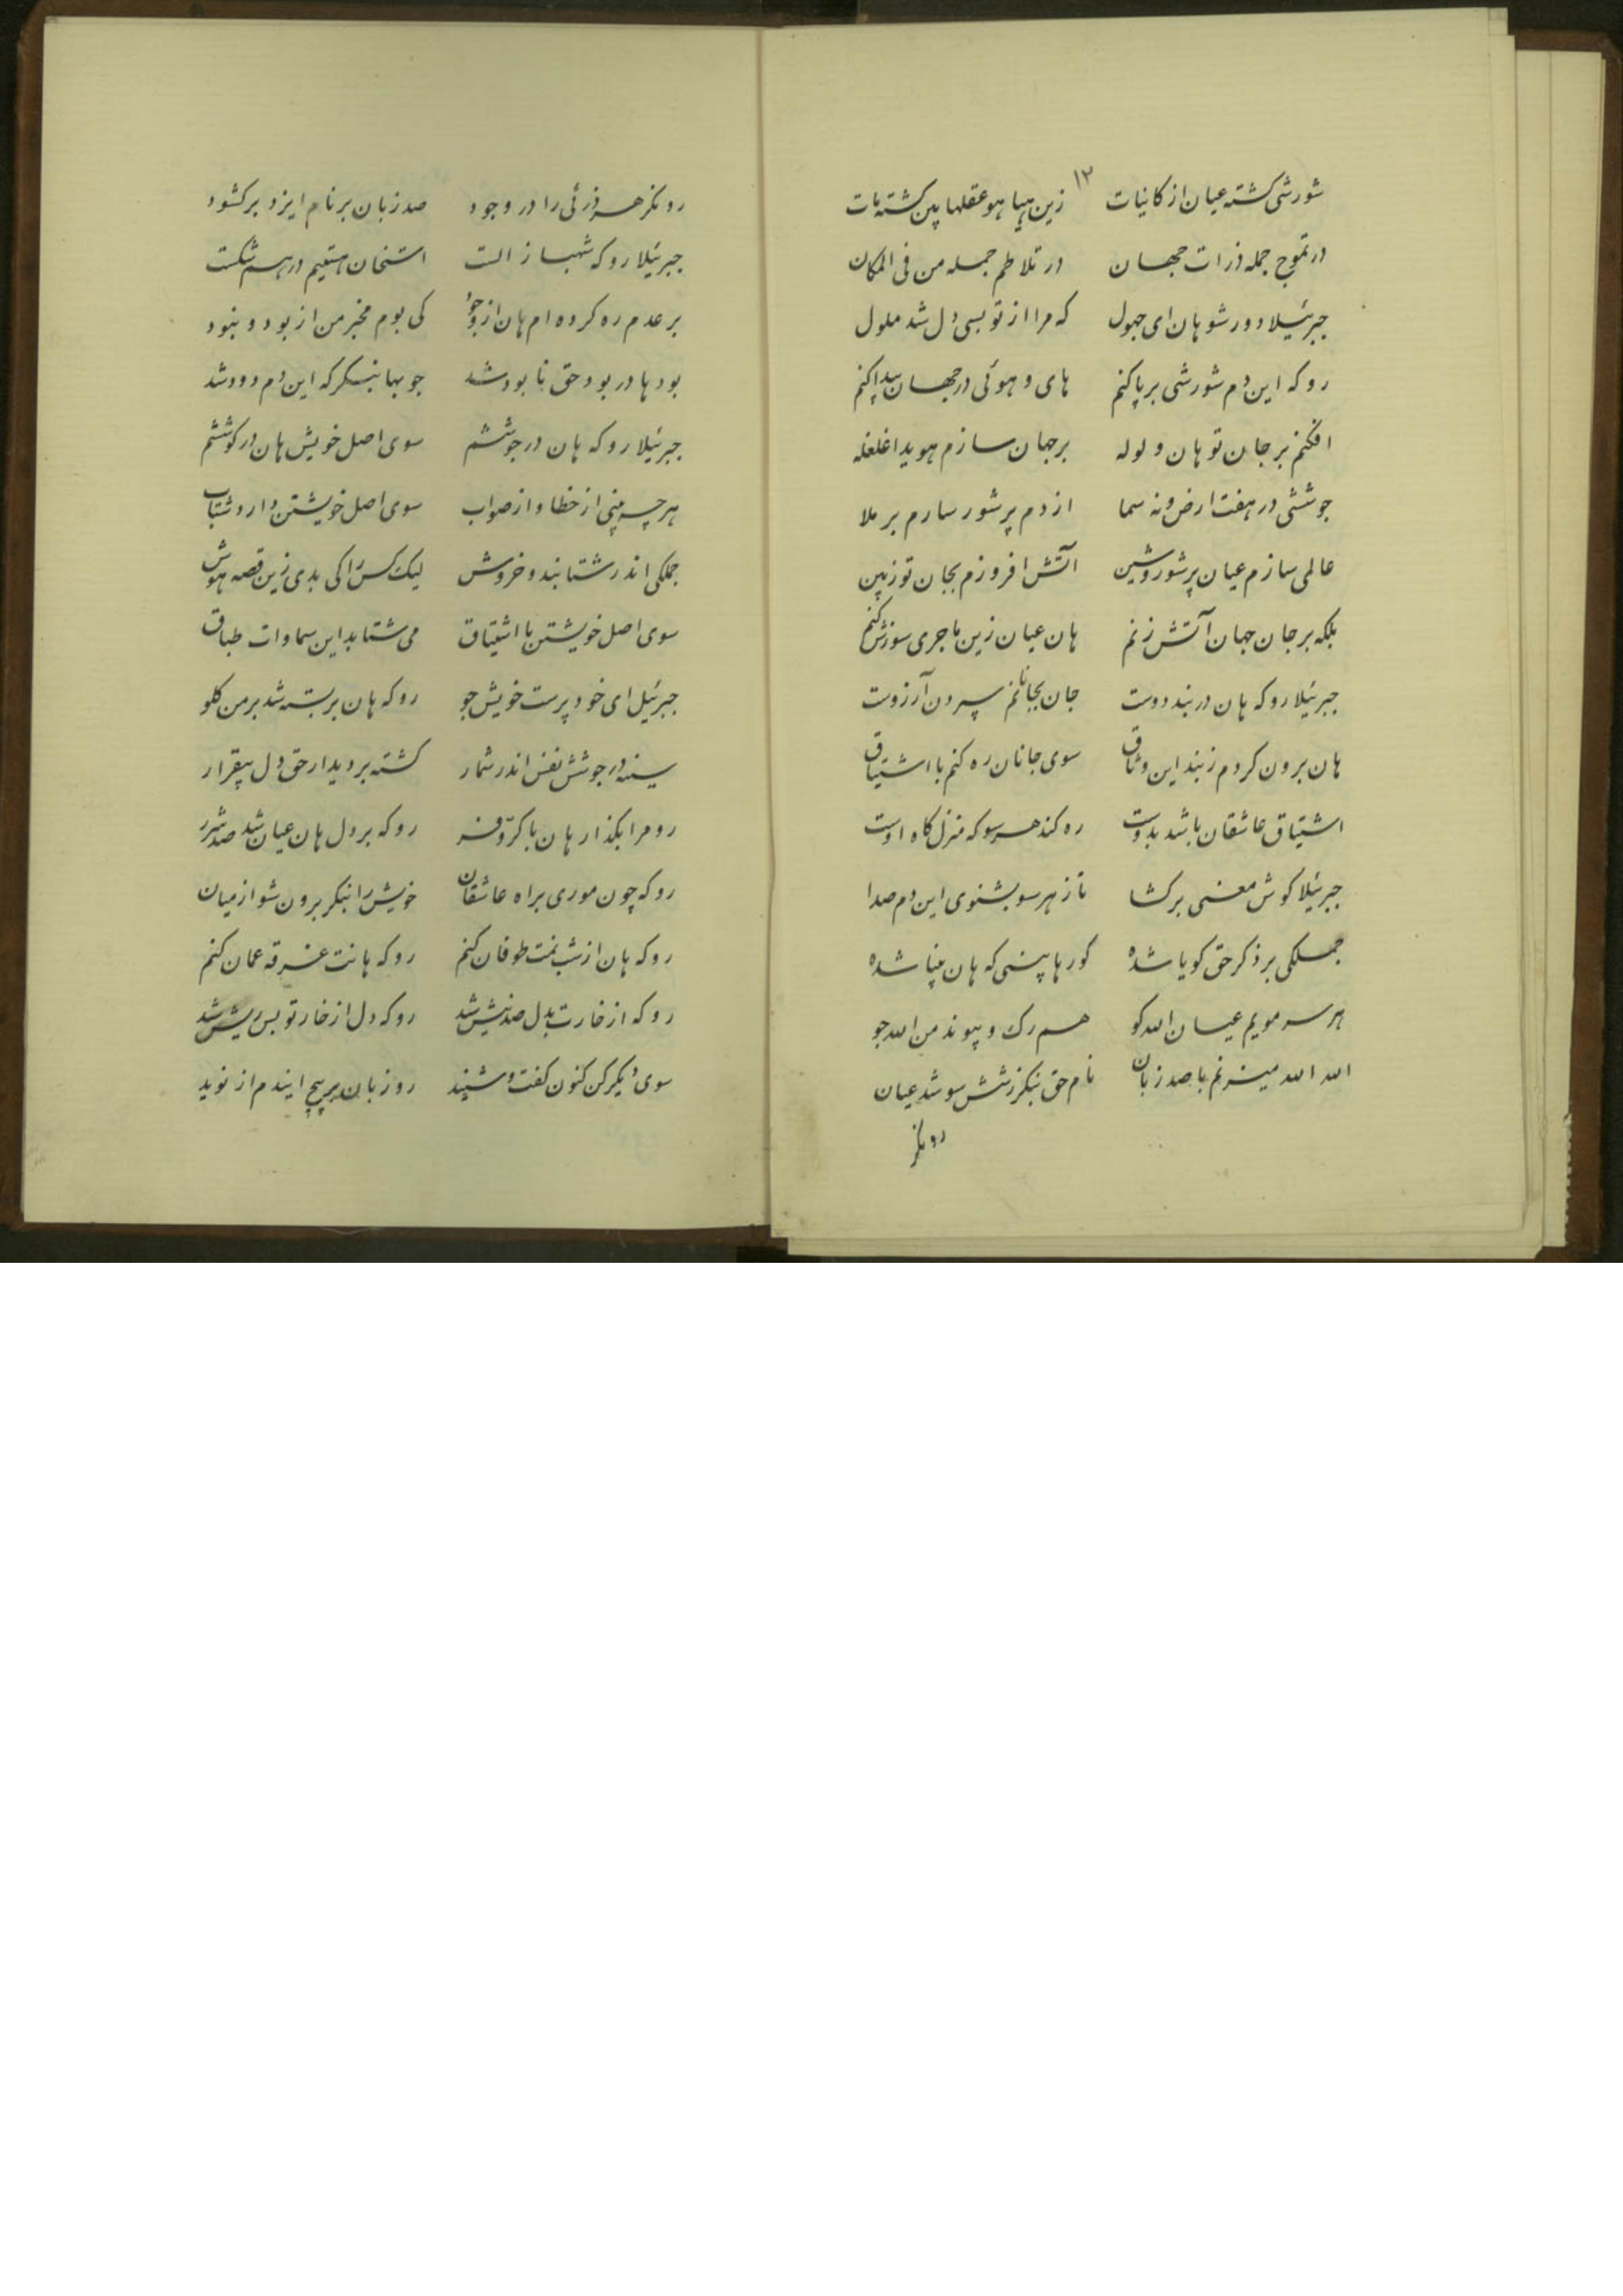 ۱۲
شورشی کشته عیان از کانیات زین هیا هو عقلها بین کشته مات
در تموج جمله ذرات جهان در تلاطم جمله من فی المکان
جبرئیلا دور شو هان ای جهول که مرا از تو بسی دل شد ملول
رو که این دم شورشی بر پا کنم های و هوئی در جهان پیدا کنم
افکنم بر جان تو هان ولوله بر جهان سازم هویدا غلغله
جوششی در هفت ارض و نه سما از دم پر شور سارم بر ملا
عالمی سازم عیان پر شور و شین آتش افروزم بجان تو زبین
بلکه بر جان جهان آتش زنم هان عیان زین ماجری سوزش کنم
جبرئیلا رو که هان در بند دوست جان بجانانم سپردن آرزوست
هان برون کردم ز بند این وثاق سوی جانان ره کنم با اشتیاق
اشتیاق عاشقان باشد بدوست ره کند هر سو که منزل کاه اوست
جبرئیلا کوش معنی بر کشا تا ز هر سو بشنوی این دم صدا
جملکی بر ذکر حق کویا شده کورها بینی که هان بینا شده
هر سر مویم عیان الله کو هم رک و پیوند من الله جو
الله الله میزنم با صد زبان نام حق بنکر ز شش سو شد عیان
رو نکر
رو نکر هر ذرئی را در وجود صد زبان بر نام ایزد بر کشود
جبرئیلا رو که شهباز الست استخان هستیم در هم شکست
بر عدم ره کرده ام هان از وجود کی بوم مخبر من از بود و نبود
بودها در بود حق نابود شد جویها بنکر که این دم رود شد
جبرئیلا رو که هان در جوششم سوی اصل خویش هان در کوششم
هر چه بینی از خطا و از صواب سوی اصل خویشتن دارد شتاب
جملکی اندر شتابند و خروش لیک کس را کی بدی زین قصه هوش
سوی اصل خویشتن با اشتیاق می شتابد این سماوات طباق
جبرئیل ای خود پرست خویش جو رو که هان بر بسته شد بر من کلو
سینه در جوشش نفس اندر شمار کشته بر دیدار حق دل بیقرار
رو مرا بکذار هان با کرّ و فر رو که بر دل هان عیان شد صد شرر
رو که چون موری براه عاشقان خویش را بنکر برون شو از میان
رو که هان از شبنمت طوفان کنم رو که هانت غرقه عمان کنم
رو که از خارت بدل صد نیش شد رو که دل از خار تو بس ریش شد
سوی دیکر کن کنون کفت و شنید رو زبان بر پیچ ایندم از نوید